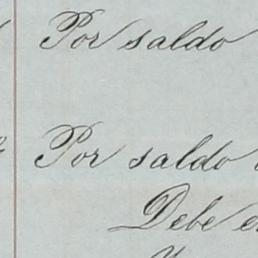 Por saldo
Por saldo
Debe